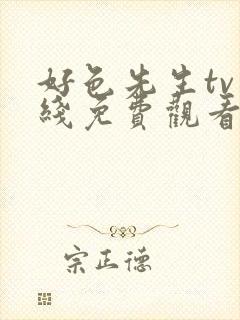 好色先生tv
綫免費觀看
宗正德